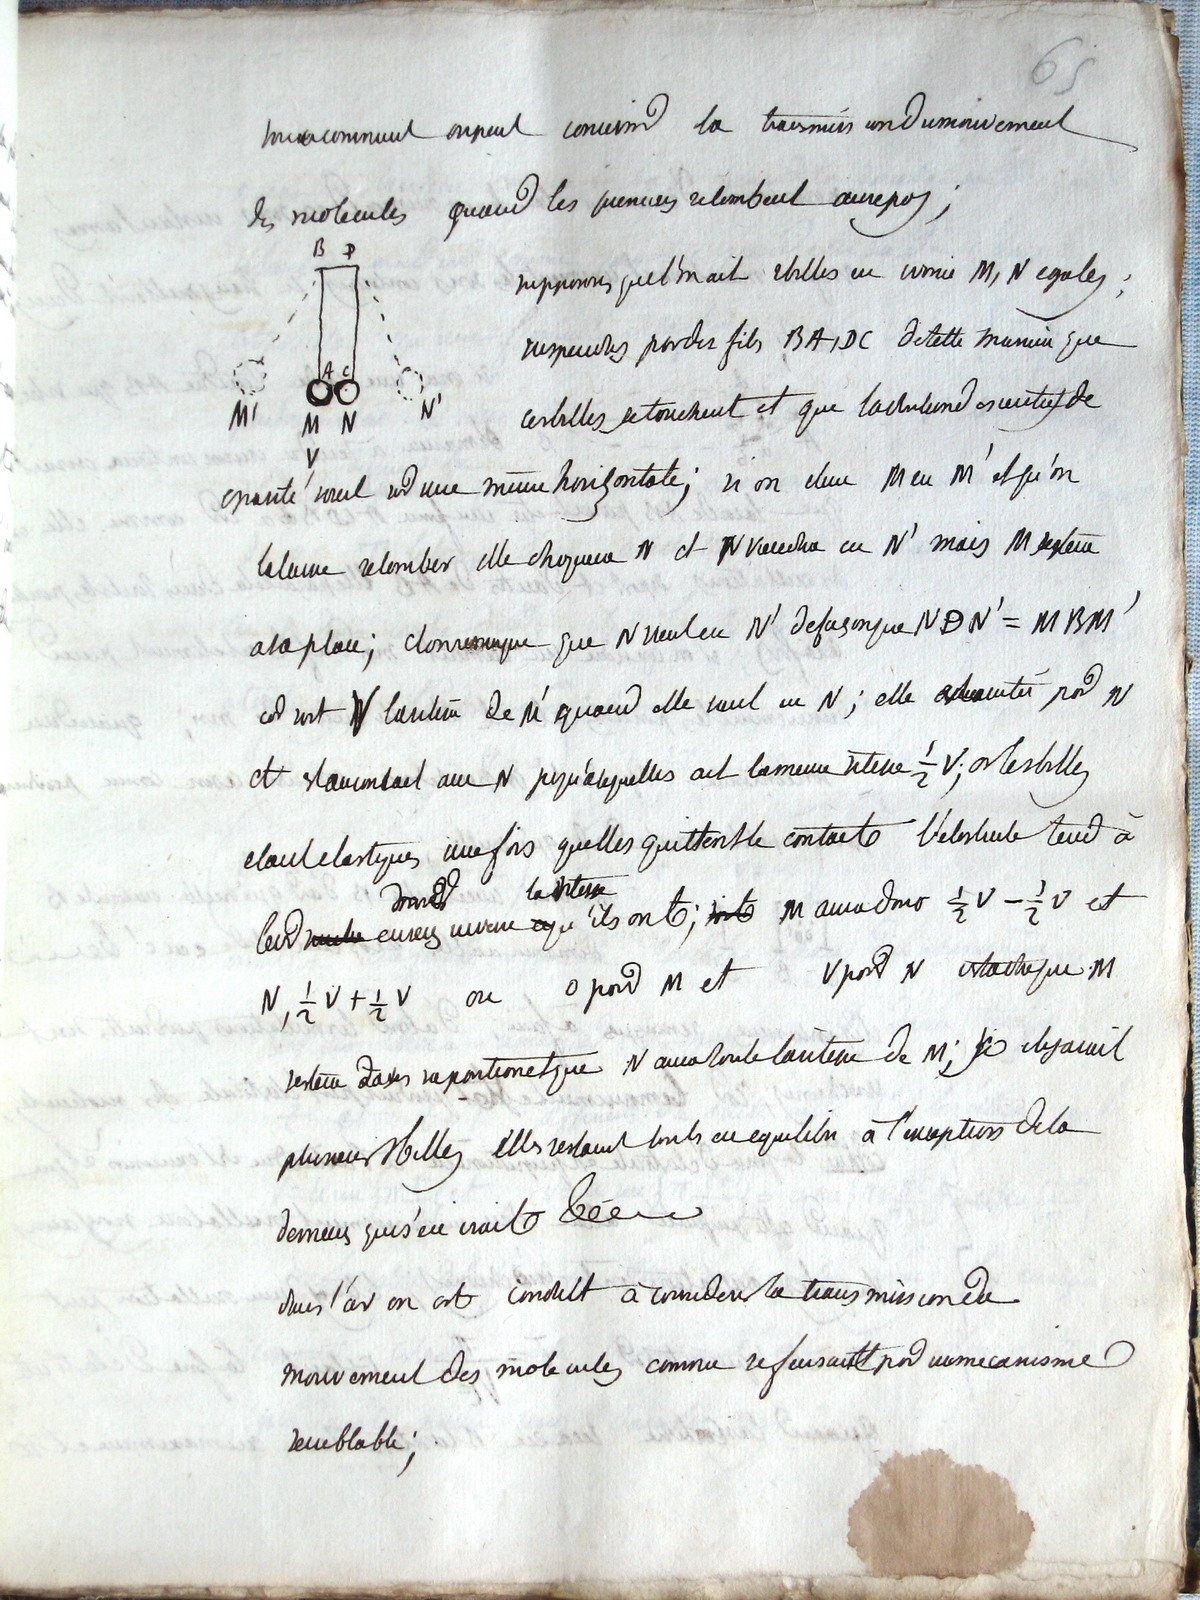 65
comment on peut concevoir la transmission du mouvement
des molecules quand les premieres retombent au repos ;
B D
supposons que l'on ait 2 billes en ivoire M, N egales ;
suspendues par des fils BA, DC de telle maniere que
A C
ces billes se touchent et que la de
M' M N N'
V
soient sur une même horizontale ; si on eleve M en M' et qu'on
la laisse retomber elle choquera N et N viendra en N' mais M restera
a sa place ; que N vient en N' de façon que NDN' = MBM'
car soit V la vitesse de M quand elle vient en N ; elle par N
et est au contact avec N jusqu'à ce qu'elles ont la meme vitesse 1/2 V ; or les billes
etant elastiques une fois qu'elles quittent le contact l'elasticité tend à
donner la vitesse
leur en sens inverse qu'ils ont ; M aura donc 1/2 V − 1/2 V et
N, 1/2 V + 1/2 V ou 0 pour M et V pour N c'est a dire que M
restera dans sa position et que N aura toute la vitesse de M ; si il y avait
plusieurs billes elles restent touts en equilibre à l'exception de la
derniere qui s'en irait &c
dans l'air on est conduit à considerer la transmission du
mouvement des molecules comme se faisant par un mecanisme
semblable ;